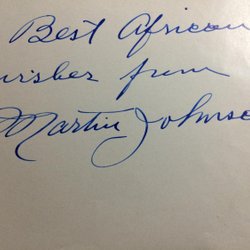 Best African
wishes from
Martin Johnso